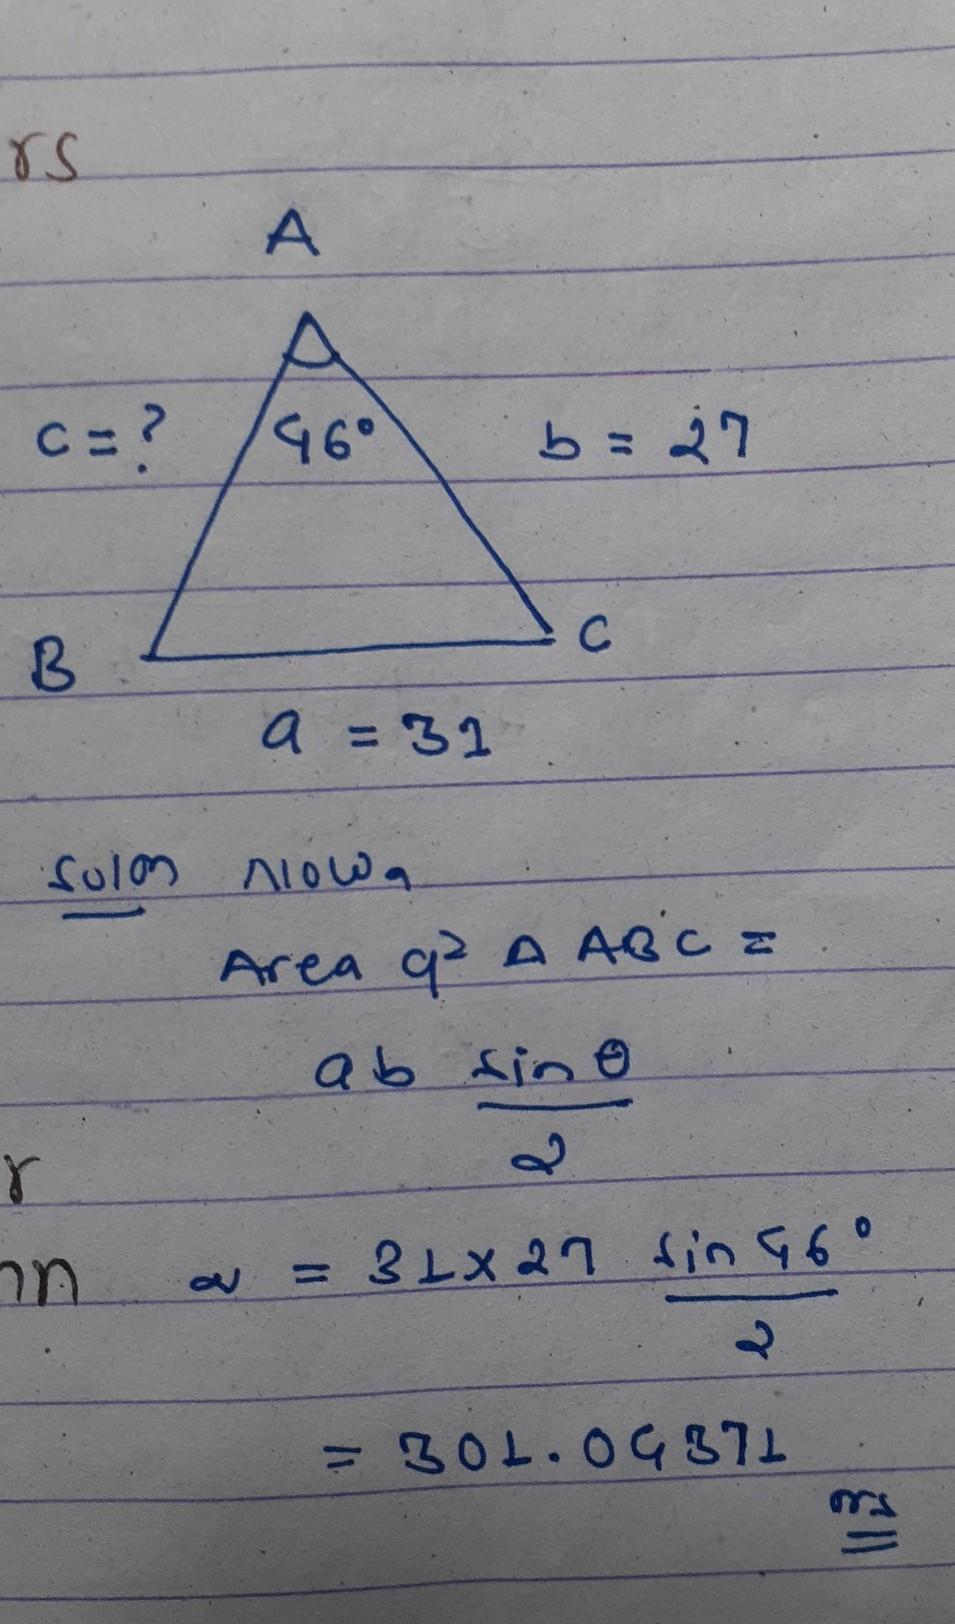 rs
A
c = ?
46°
b = 27
B
C
a = 31
Soln Now,
Area of Δ ABC =
ab sin θ
2
r
nn
= 31 x 27 sin 46°
2
= 301.04371